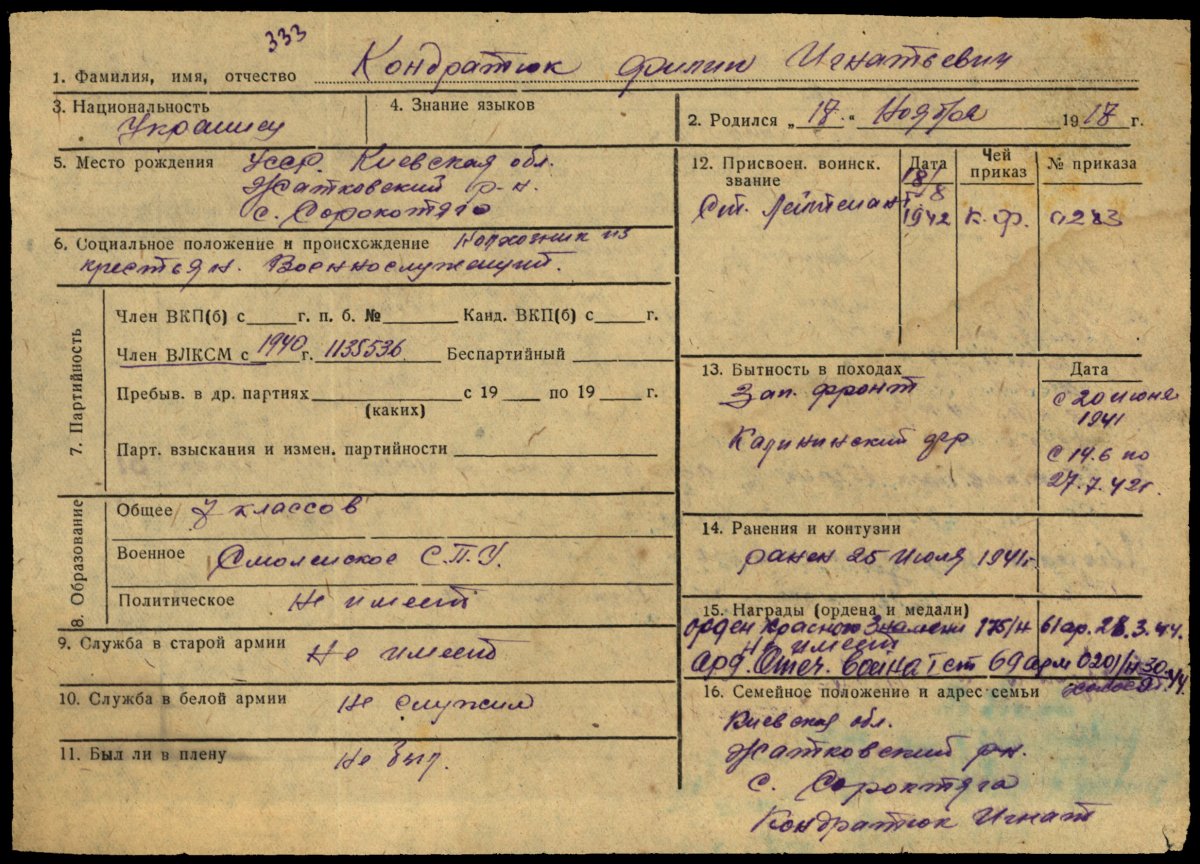 333
1. Фамилия, имя, отчество Кондратюк Филип Игнатьевич
3. Национальность Украинец
4. Знание языков
2. Родился „ 17 “ Ноября 1917 г.
5. Место рождения Усср. Киевская обл.
Жатковский р-н.
с. Сорокотяго
6. Социальное положение и происхождение Колхозник из
крестьян. Военнослужащий.
7. Партийность
Член ВКП(б) с г. п. б. № Канд. ВКП(б) с г.
Член ВЛКСМ с 1940 г. 1135536 Беспартийный
Пребыв. в др. партиях с 19 по 19 г.
(каких)
Парт. взыскания и измен. партийности
8. Образование
Общее 7 классов
Военное Смоленское С.П.У.
Политическое Не имеет
9. Служба в старой армии Не имеет
10. Служба в белой армии Не служил
11. Был ли в плену Не был.
12. Присвоен. воинск. звание
Дата
Чей приказ
№ приказа
Ст. Лейтенант 18/8 1942 К.Ф. 0283
13. Бытность в походах
Дата
Зап. фронт с 20 июня
1941
Калининский фр с 14.6 по
27.7.42г.
14. Ранения и контузии
ранен 25 Июля 1941г.
15. Награды (ордена и медали)
орден Красного Знамени 175/н 61 ар. 28.3.44.
Не имеет
Орд. Отеч. война I ст 69 арм 0201/н 30
16. Семейное положение и адрес семьи холост
Киевская обл.
Жатковский р-н.
с. Сороктяга
Кондратюк Игнат